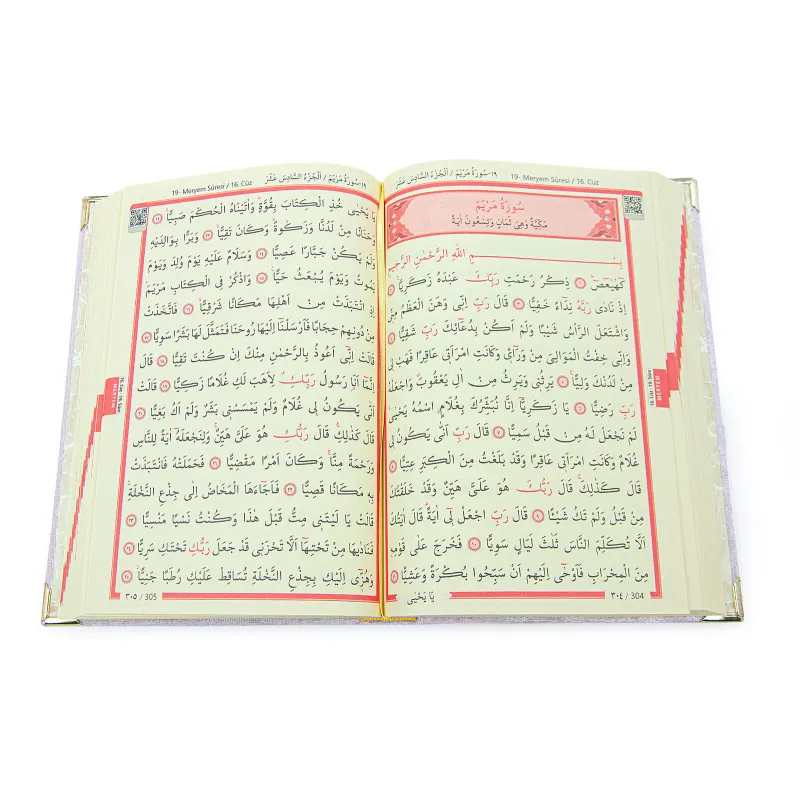 ١٩-سُورَةُ مَرْيَمَ / اَلْجُزْءُ السَّادِسَ عَشَرَ
19- Meryem Sûresi / 16. Cüz
سُورَةُ مَرْيَمَ
مَكِّيَّةٌ وَهِىَ ثَمَانٍ وَتِسْعُونَ اٰيَةً
بِسْــــمِ اللّٰهِ الرَّحْمٰنِ الرَّحٖيمِ
كٓهٰيٰعٓصٓ ﴿١﴾ ذِكْرُ رَحْمَتِ رَبِّكَ عَبْدَهُ زَكَرِيَّا ﴿٢﴾
اِذْ نَادٰى رَبَّهُ نِدَٓاءً خَفِيًّا ﴿٣﴾ قَالَ رَبِّ اِنّٖى وَهَنَ الْعَظْمُ مِنّٖى
وَاشْتَعَلَ الرَّأْسُ شَيْبًا وَلَمْ اَكُنْ بِدُعَٓائِكَ رَبِّ شَقِيًّا ﴿٤﴾
وَاِنّٖى خِفْتُ الْمَوَالِىَ مِنْ وَرَٓائٖى وَكَانَتِ امْرَاَتٖى عَاقِرًا فَهَبْ لٖى
مِنْ لَدُنْكَ وَلِيًّا ﴿٥﴾ يَرِثُنٖى وَيَرِثُ مِنْ اٰلِ يَعْقُوبَ وَاجْعَلْهُ
رَبِّ رَضِيًّا ﴿٦﴾ يَا زَكَرِيَّٓا اِنَّا نُبَشِّرُكَ بِغُلَامٍ اسْمُهُ يَحْيٰى
لَمْ نَجْعَلْ لَهُ مِنْ قَبْلُ سَمِيًّا ﴿٧﴾ قَالَ رَبِّ اَنّٰى يَكُونُ لٖى
غُلَامٌ وَكَانَتِ امْرَاَتٖى عَاقِرًا وَقَدْ بَلَغْتُ مِنَ الْكِبَرِ عِتِيًّا ﴿٨﴾
قَالَ كَذٰلِكَ قَالَ رَبُّكَ هُوَ عَلَىَّ هَيِّنٌ وَقَدْ خَلَقْتُكَ
مِنْ قَبْلُ وَلَمْ تَكُ شَيْـًٔا ﴿٩﴾ قَالَ رَبِّ اجْعَلْ لٖٓى اٰيَةً قَالَ اٰيَتُكَ
اَلَّا تُكَلِّمَ النَّاسَ ثَلٰثَ لَيَالٍ سَوِيًّا ﴿١٠﴾ فَخَرَجَ عَلٰى قَوْمِهٖ
مِنَ الْمِحْرَابِ فَاَوْحٰٓى اِلَيْهِمْ اَنْ سَبِّحُوا بُكْرَةً وَعَشِيًّا ﴿١١﴾
يَا يَحْيٰى
٣٠٤ / 304
16. Cüz · 19. Sûre
MERYEM
١٩-سُورَةُ مَرْيَمَ / اَلْجُزْءُ السَّادِسَ عَشَرَ
19- Meryem Sûresi / 16. Cüz
يَا يَحْيٰى خُذِ الْكِتَابَ بِقُوَّةٍ وَاٰتَيْنَاهُ الْحُكْمَ صَبِيًّا ﴿١٢﴾
وَحَنَانًا مِنْ لَدُنَّا وَزَكٰوةً وَكَانَ تَقِيًّا ﴿١٣﴾ وَبَرًّا بِوَالِدَيْهِ
وَلَمْ يَكُنْ جَبَّارًا عَصِيًّا ﴿١٤﴾ وَسَلَامٌ عَلَيْهِ يَوْمَ وُلِدَ وَيَوْمَ
يَمُوتُ وَيَوْمَ يُبْعَثُ حَيًّا ﴿١٥﴾ وَاذْكُرْ فِى الْكِتَابِ مَرْيَمَ
اِذِ انْتَبَذَتْ مِنْ اَهْلِهَا مَكَانًا شَرْقِيًّا ﴿١٦﴾ فَاتَّخَذَتْ
مِنْ دُونِهِمْ حِجَابًا فَاَرْسَلْنَٓا اِلَيْهَا رُوحَنَا فَتَمَثَّلَ لَهَا بَشَرًا سَوِيًّا ﴿١٧﴾
قَالَتْ اِنّٖٓى اَعُوذُ بِالرَّحْمٰنِ مِنْكَ اِنْ كُنْتَ تَقِيًّا ﴿١٨﴾ قَالَ
اِنَّمَٓا اَنَا۬ رَسُولُ رَبِّكِ لِاَهَبَ لَكِ غُلَامًا زَكِيًّا ﴿١٩﴾ قَالَتْ
اَنّٰى يَكُونُ لٖى غُلَامٌ وَلَمْ يَمْسَسْنٖى بَشَرٌ وَلَمْ اَكُ بَغِيًّا ﴿٢٠﴾
قَالَ كَذٰلِكِ قَالَ رَبُّكِ هُوَ عَلَىَّ هَيِّنٌ وَلِنَجْعَلَهُٓ اٰيَةً لِلنَّاسِ
وَرَحْمَةً مِنَّا وَكَانَ اَمْرًا مَقْضِيًّا ﴿٢١﴾ فَحَمَلَتْهُ فَانْتَبَذَتْ
بِهٖ مَكَانًا قَصِيًّا ﴿٢٢﴾ فَاَجَٓاءَهَا الْمَخَاضُ اِلٰى جِذْعِ النَّخْلَةِ
قَالَتْ يَا لَيْتَنٖى مِتُّ قَبْلَ هٰذَا وَكُنْتُ نَسْيًا مَنْسِيًّا ﴿٢٣﴾
فَنَادٰيهَا مِنْ تَحْتِهَٓا اَلَّا تَحْزَنٖى قَدْ جَعَلَ رَبُّكِ تَحْتَكِ سَرِيًّا ﴿٢٤﴾
وَهُزّٖٓى اِلَيْكِ بِجِذْعِ النَّخْلَةِ تُسَاقِطْ عَلَيْكِ رُطَبًا جَنِيًّا ﴿٢٥﴾
٣٠٥ / 305
16. Cüz · 19. Sûre
MERYEM